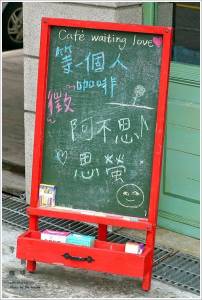 Café waiting love
等一個人
咖啡
徵
阿不思
思螢